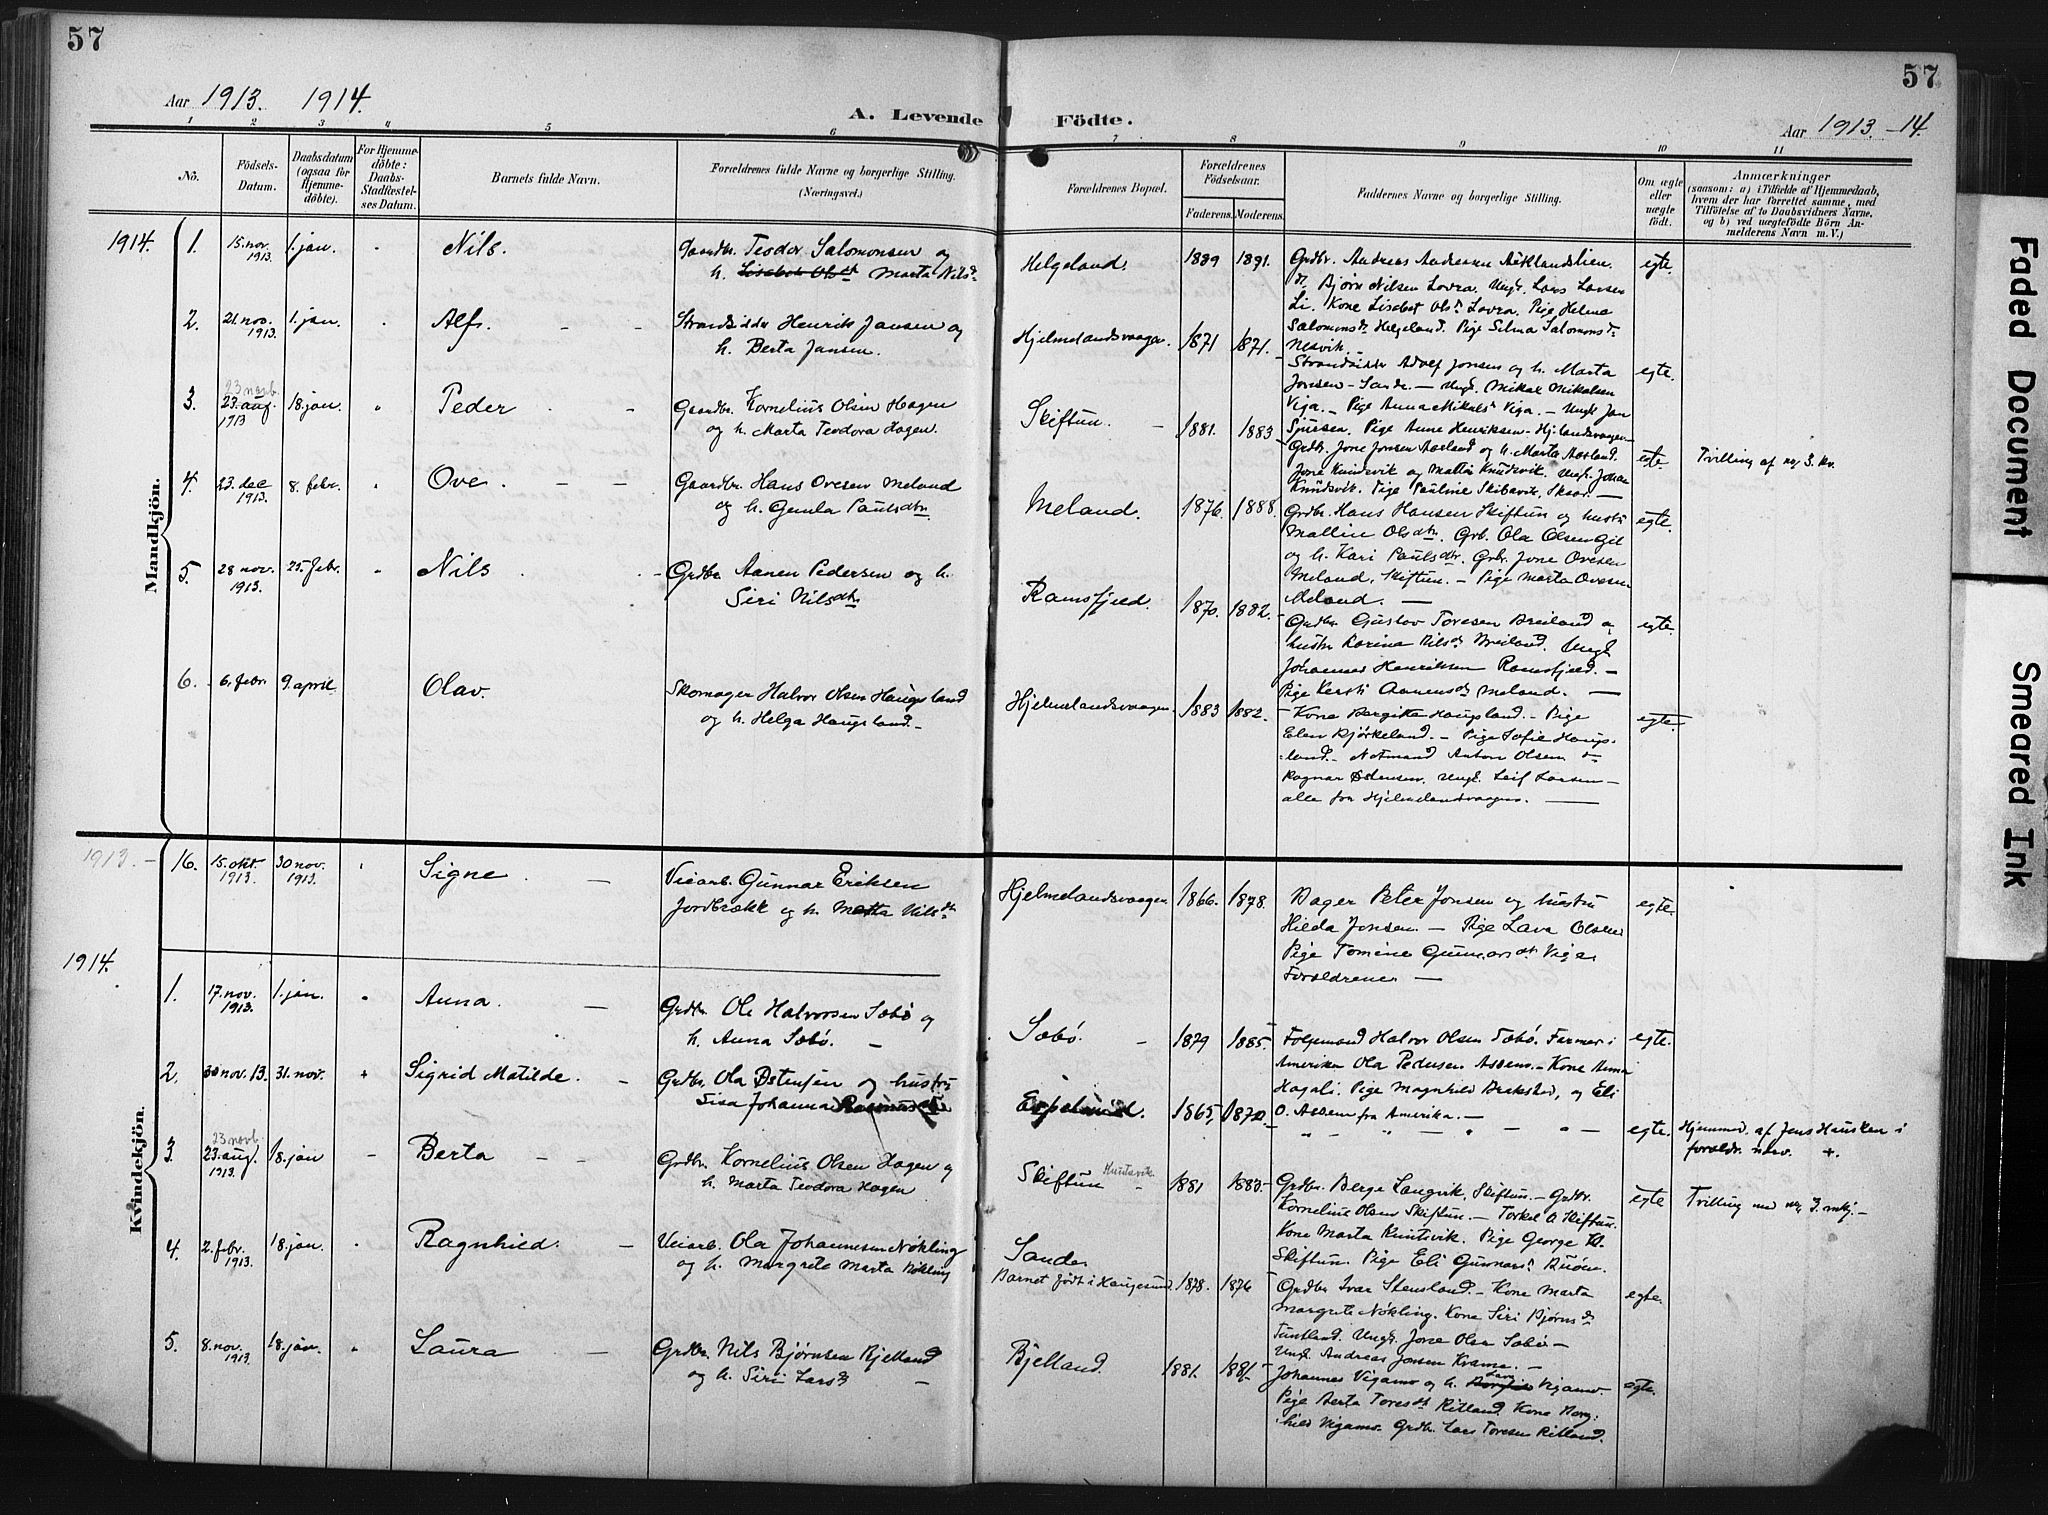 57
57
Aar 1913. 1914.
A. Levende Födte.
Aar 1913.-14.
1 2 3 4 5 6 7 8 9 10 11
No.
Födsels-Datum.
Daabsdatum (ogsaa for Hjemme-döbte).
For Hjemme-döbte: Daabs-Stadfæstel-ses Datum.
Barnets fulde Navn.
Forældrenes fulde Navne og borgerlige Stilling.
(Næringsvei.)
Forældrenes Bopæl.
Forældrenes Födselsaar.
Faderens. Moderens.
Faddernes Navne og borgerlige Stilling.
Om ægte eller uægte født.
Anmærkninger
(saasom: a) i Tilfælde af Hjemmedaab,
hvem der har forrettet samme, med
Tilföielse af to Daabsvidners Navne,
og b) ved uægtefödte Börn An-
melderens Navn m. V.)
Mandkjön.
1914.
1. 15. nov. 1913. 1. jan. Nils. Gaardbr. Teodor Salomonsen og
h. Marta Nilsd.
Helgeland. 1889 1891.
Grdbr. Andreas Andreasen
Bjørn Nilsen Lovra. Ungk. Lars Larsen
Li. Kone Lisebet Olsd. Lovra. Pige Helene
Salomonsd. Helgeland. Pige Selma Salomonsd.
Nesvik.
egte.
2. 21. nov. 1913. 1. jan. Alf. Strandsidder Henrik Jansen og
h. Berta Jansen.
Hjelmelandsvaagen. 1871 1871.
Strandsidder Adolf Jonsen og h. Marta
Jonsen - Sande. - Ungk. Mikal Mikalsen
Viga. - Pige Anna Mikalsd. Viga. - Ungk. Jan
Pige Anne Henriksen - Hjelandsvaagen
egte.
3. 23 novb. 23. aug. 1913 18. jan. Peder Gaardbr. Kornelius Olsen Hagen
og h. Marta Teodora Hagen.
Skiftun. 1881. 1883
Grdbr. Jone Jonsen Aasland og h. Marta Aasland.
Jone Knudsvik og Marta Knudsvik. Ungk. Johan
Knudsvik. Pige Pauline
egte.
Tvilling af nr 3. kv.
4. 23. dec 1913. 8. febr. Ove. Gaardbr. Hans Ovesen Meland
og h. Gunla Paulsdtr.
Meland. 1876. 1888.
Grdbr. Hans Hansen Skiftun og hustru
Mallin Olsdtr. Grb. Ola Olsen Gil
og h. Kari Paulsdtr. Grbr. Jone Ovesen
Meland, Skiftun. - Pige Marta Ovesen
Meland.
egte.
5. 28 nov. 1913. 25. febr. Nils Grdbr. Aanen Pedersen og h.
Siri Nilsdtr.
Ramsfjeld. 1870. 1882.
Grdbr. Gustav Toresen Breiland og
hustr. Karina Nilsd. Breiland. Ungk.
Johannes Henriksen Ramsfjeld. -
Pige Kersti Aanensd. Meland.
egte.
6. 6. febr. 9. april. Olav. Skomager Halvor Olsen Haugsland
og h. Helga Haugsland.
Hjelmelandsvaagen. 1883 1882.
Kone Bergitta Haugsland. - Pige
Elen Bjørkeland. - Pige Sofie Haugs-
land. Notmand Anton Olsen.
Ragnar Østensen. Ungk. Leif Larsen -
alle fra Hjelmelandsvaagen.
egte.
Kvindekjön.
1913.
16. 15. okt. 1913. 30 nov. 1913. Signe Veiarb. Gunnar Eriksen
Jordbrække og h. Marta Nilsdtr
Hjelmelandsvaagen. 1866. 1878.
Bager Peter Jonsen og hustru
Hilda Jonsen. - Pige Lava Olsen
Pige Tomine Gunnarsdtr Viga.
Forældrene.
egte.
1914.
1. 17. nov. 1913. 1. jan. Anna Grdbr. Ole Halvorsen Sæbø og
h. Anna Sæbø.
Sæbø. 1879 1885.
Følgemand Halvor Olsen Sæbø. Farmer i
Amerika Ola Pedersen Assem. - Kone Anna
Hagali. Pige Magnhild og Eli
O. Assem fra Amerika.
egte.
2. 30 nov. 13. 31. nov. Sigrid Matilde. Grdbr. Ola Østensen og hustru
Sisa Johanna
1865, 1870. egte. Hjemmed. af Jens Hausken i
foraldr. nærv. +.
3. 23 novb. 23. aug. 1913. 18. jan Berta Grdbr. Kornelius Olsen Hagen og
h. Marta Teodora Hagen.
Skiftun 1881 1883.
Grdbr. Berge Langvik, Skiftun. - Grdbr.
Kornelius Olsen Skiftun. - Torkel O Skiftun.
Kone Marta Knutsvik. Pige George
Skiftun. Pige Eli Gunnarsd. Buøen.
egte Tvilling med nr 3. mkj.
4. 2. febr. 1913. 18. jan. Ragnhild. Veiarb. Ola Johannesen Nøkling
og h. Margrete Marta Nøkling
Sande.
Barnet født i Haugesund. 1878. 1876
Grdbr. Ivar Stensland. - Kone Marta
Margrete Nøkling. Kone Siri Bjørnsd.
Tuntland. Ungk. Jone Olsen Sæbø -
Ungk. Andreas Jonsen Kvame.
egte.
5. 8. nov. 1913. 18. jan. Laura Grdbr. Nils Bjørnsen Bjelland
og h. Siri Larsd.
Bjelland. 1881. 1881.
Johannes Vigamo og h. Vigamo.
Pige Berta Toresdt. Ritland. Kone Borg-
hild Vigamo. Grdbr. Lars Toresen Ritland.
egte.
Faded Document
Smeared Ink